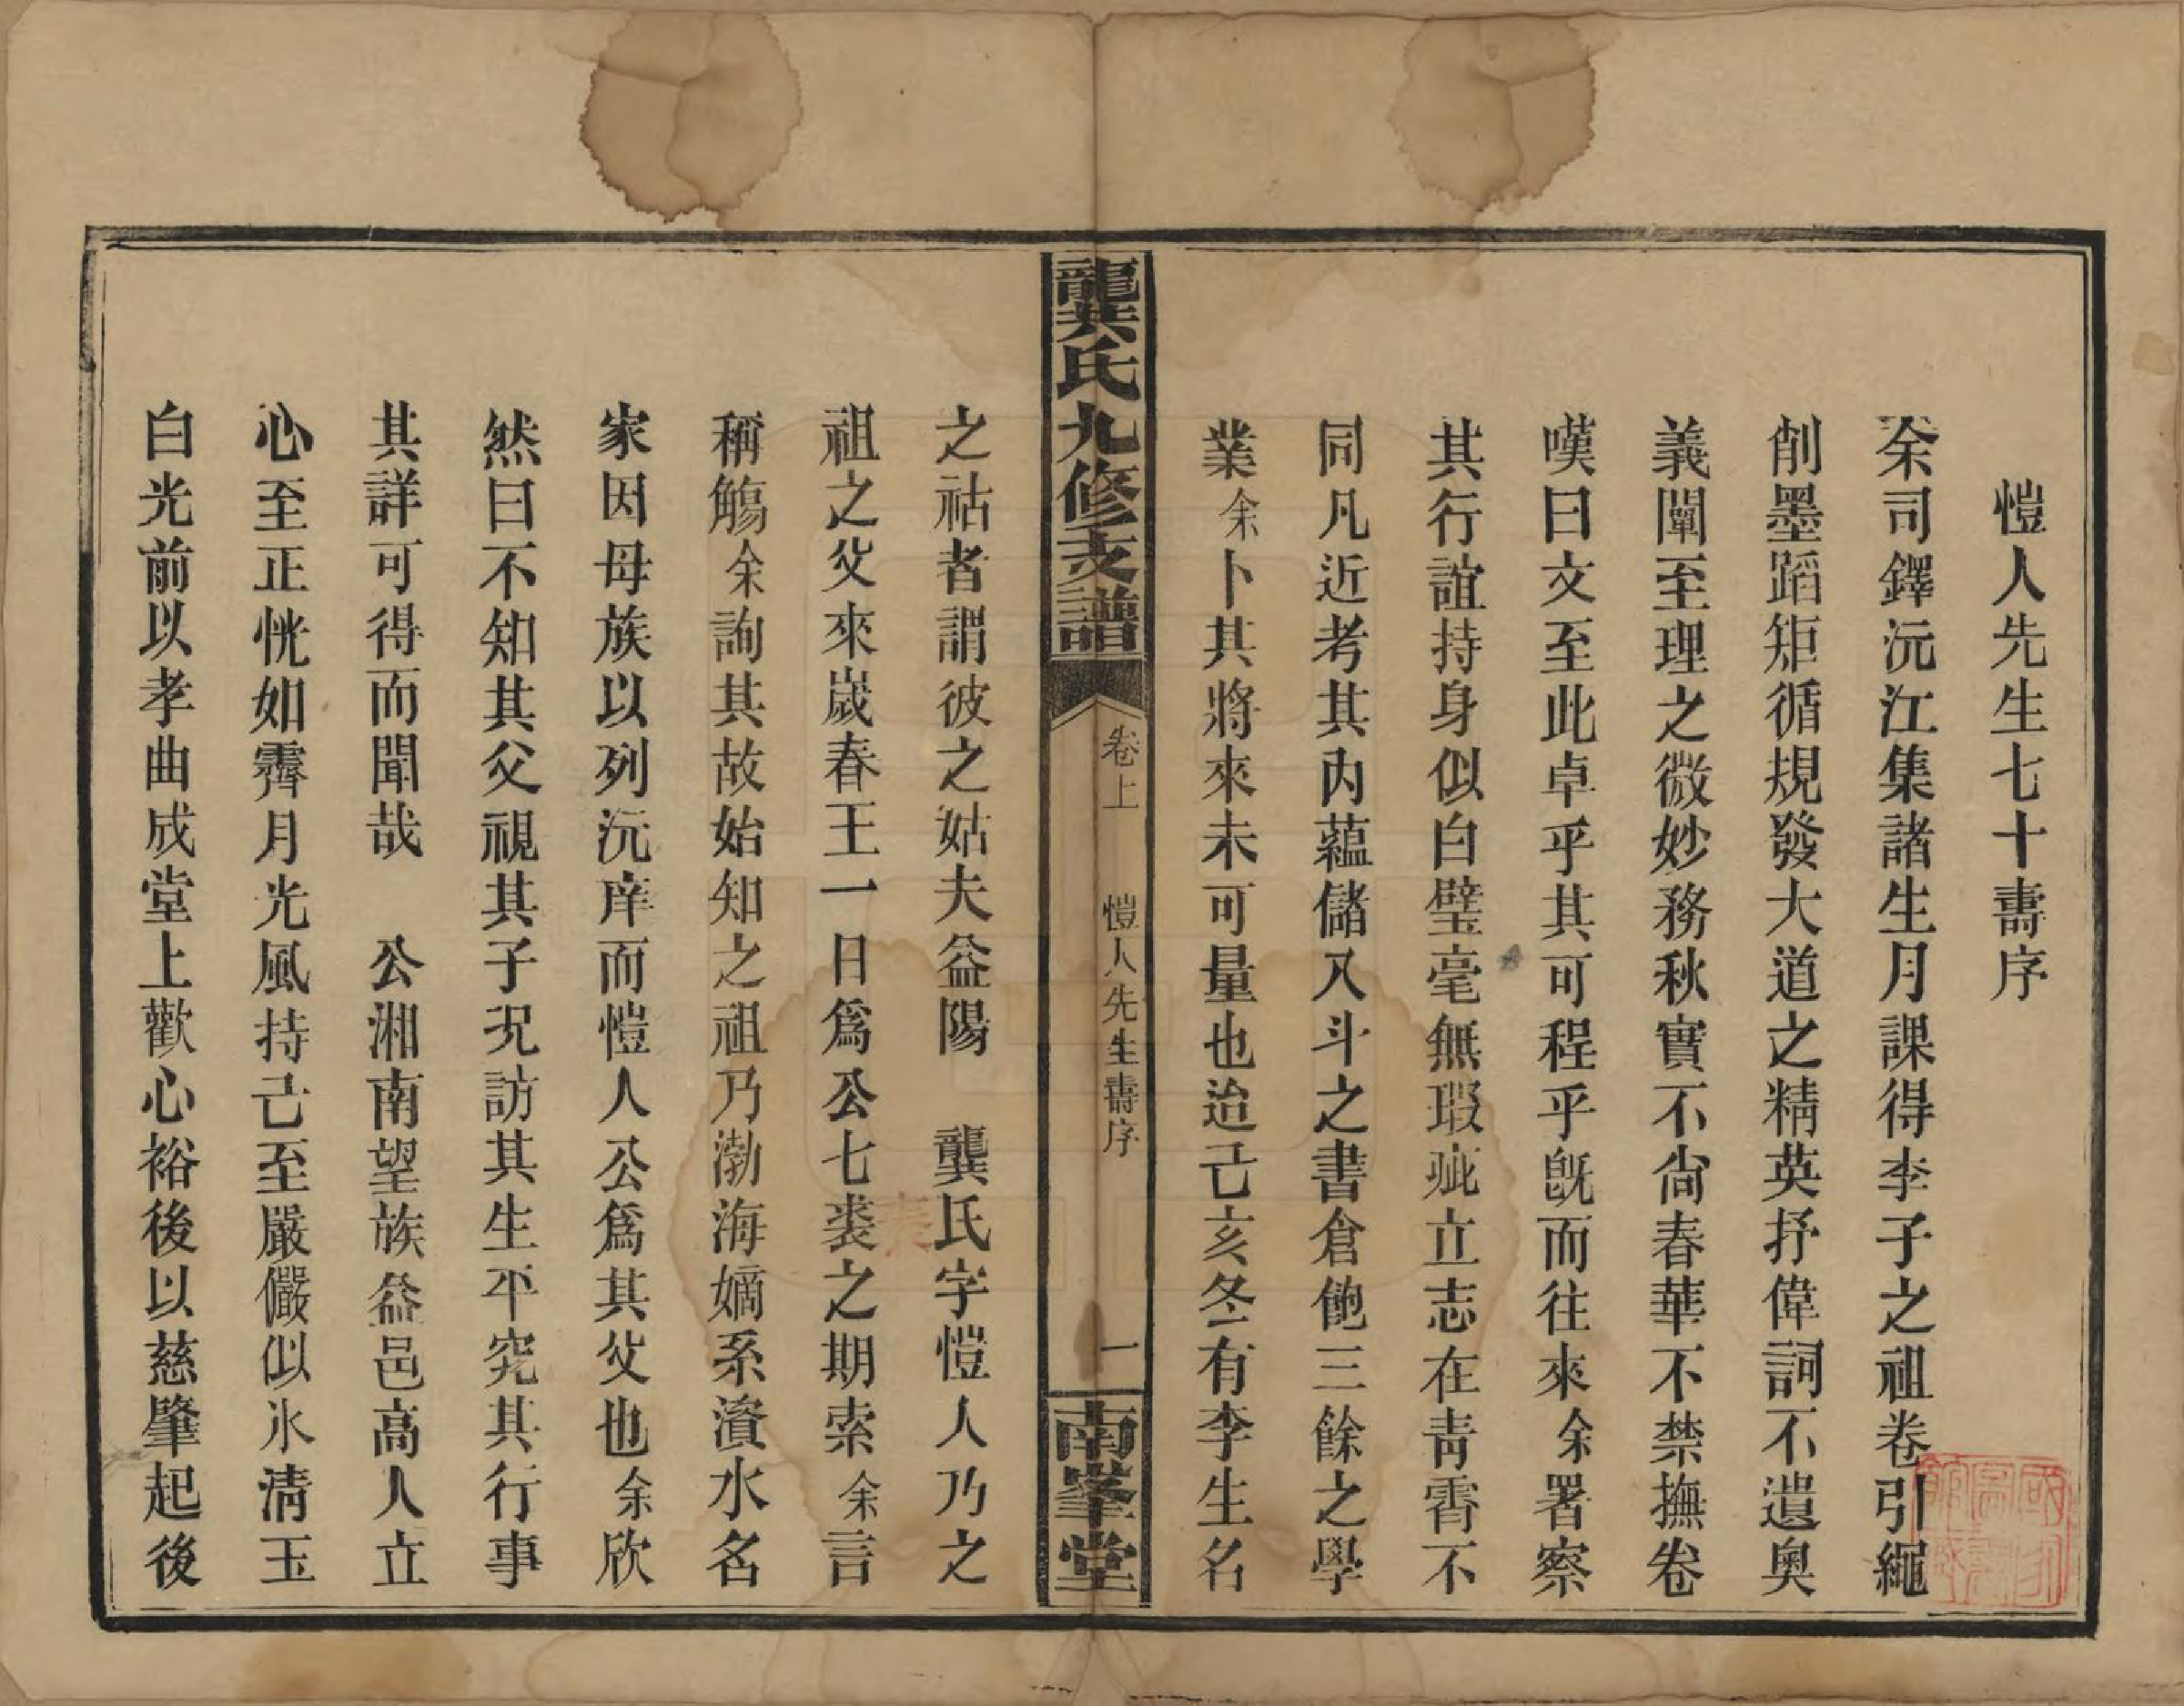 愷人先生七十壽序
余司鐸沅江集諸生月課得李子之祖卷引繩
削墨蹈矩循規發大道之精英抒偉詞不遺奧
義闡至理之微妙務秋實不尙春華不禁撫卷
嘆曰文至此卓乎其可程乎旣而往來余署察
其行誼持身似白璧毫無瑕疵立志在靑霄不
同凡近考其內蘊儲八斗之書倉飽三餘之學
業余卜其將來未可量也迨己亥冬有李生名
龔氏九修支譜
卷上
愷人先生壽序
一
南峯堂
之祜者謂彼之姑夫益陽　龔氏字愷人乃之
祖之父來歲春王一日爲公七裘之期索余言
稱觴余詢其故始知之祖乃渤海嫡系濱水名
家因母族以列沅庠而愷人公爲其父也余欣
然曰不知其父視其子況訪其生平究其行事
其詳可得而聞哉　公湘南望族益邑高人立
心至正恍如霽月光風持己至嚴儼似氷清玉
白光前以孝曲成堂上歡心裕後以慈肇起後
表